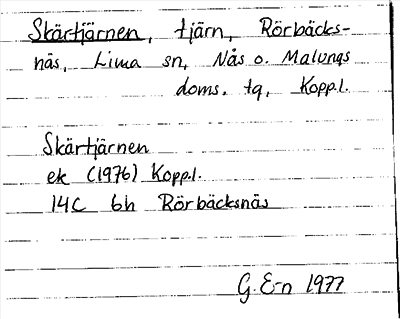 Skärtjärnen, tjärn, Rörbäcks-
näs, Lima sn, Nås o. Malungs
doms. tg, Kopp.l.
Skärtjärnen
ek (1976) Kopp.l.
14C 6h Rörbäcksnäs
G. E-n 1977